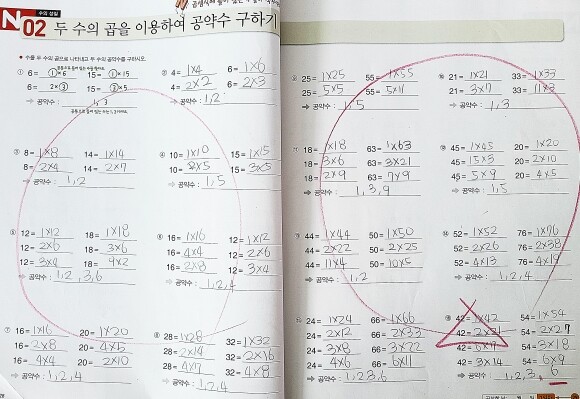 N 02 수의 성질 두 수의 곱을 이용하여 공약수 구하기
● 수를 두 수의 곱으로 나타내고 두 수의 공약수를 구하시오.
① 6= 1×6 15= 1×15
6= 2×3 15= 3×5
⇒ 공약수 : 1, 3
② 4= 1×4 6= 1×6
4= 2×2 6= 2×3
⇒ 공약수 : 1, 2
③ 8= 1×8 14= 1×14
8= 2×4 14= 2×7
⇒ 공약수 : 1, 2
④ 10= 1×10 15= 1×15
10= 2×5 15= 3×5
⇒ 공약수 : 1, 5
⑤ 12= 1×12 18= 1×18
12= 2×6 18= 3×6
12= 3×4 18= 9×2
⇒ 공약수 : 1, 2, 3, 6
⑥ 16= 1×16 12= 1×12
16= 4×4 12= 2×6
16= 2×8 12= 3×4
⇒ 공약수 : 1, 2, 4
⑦ 16= 1×16 20= 1×20
16= 2×8 20= 4×5
16= 4×4 20= 2×10
⇒ 공약수 : 1, 2, 4
⑧ 28= 1×28 32= 1×32
28= 2×14 32= 2×16
28= 4×7 32= 4×8
⇒ 공약수 : 1, 2, 4
25= 1×25 55= 1×55
25= 5×5 55= 5×11
⇒ 공약수 : 1, 5
21= 1×21 33= 1×33
21= 3×7 33= 11×3
⇒ 공약수 : 1, 3
18= 1×18 63= 1×63
18= 3×6 63= 3×21
18= 2×9 63= 7×9
⇒ 공약수 : 1, 3, 9
45= 1×45 20= 1×20
45= 15×3 20= 2×10
45= 5×9 20= 4×5
⇒ 공약수 : 1, 5
44= 1×44 50= 1×50
44= 2×22 50= 2×25
44= 11×4 50= 10×5
⇒ 공약수 : 1, 2
52= 1×52 76= 1×76
52= 2×26 76= 2×38
52= 4×13 76= 4×19
⇒ 공약수 : 1, 2, 4
24= 1×24 66= 1×66
24= 2×12 66= 2×33
24= 3×8 66= 3×22
24= 4×6 66= 6×11
⇒ 공약수 : 1, 2, 3, 6
42= 1×42 54= 1×54
42= 2×21 54= 2×27
42= 6×7 54= 3×18
42= 3×14 54= 6×9
⇒ 공약수 : 1, 2, 3, 6